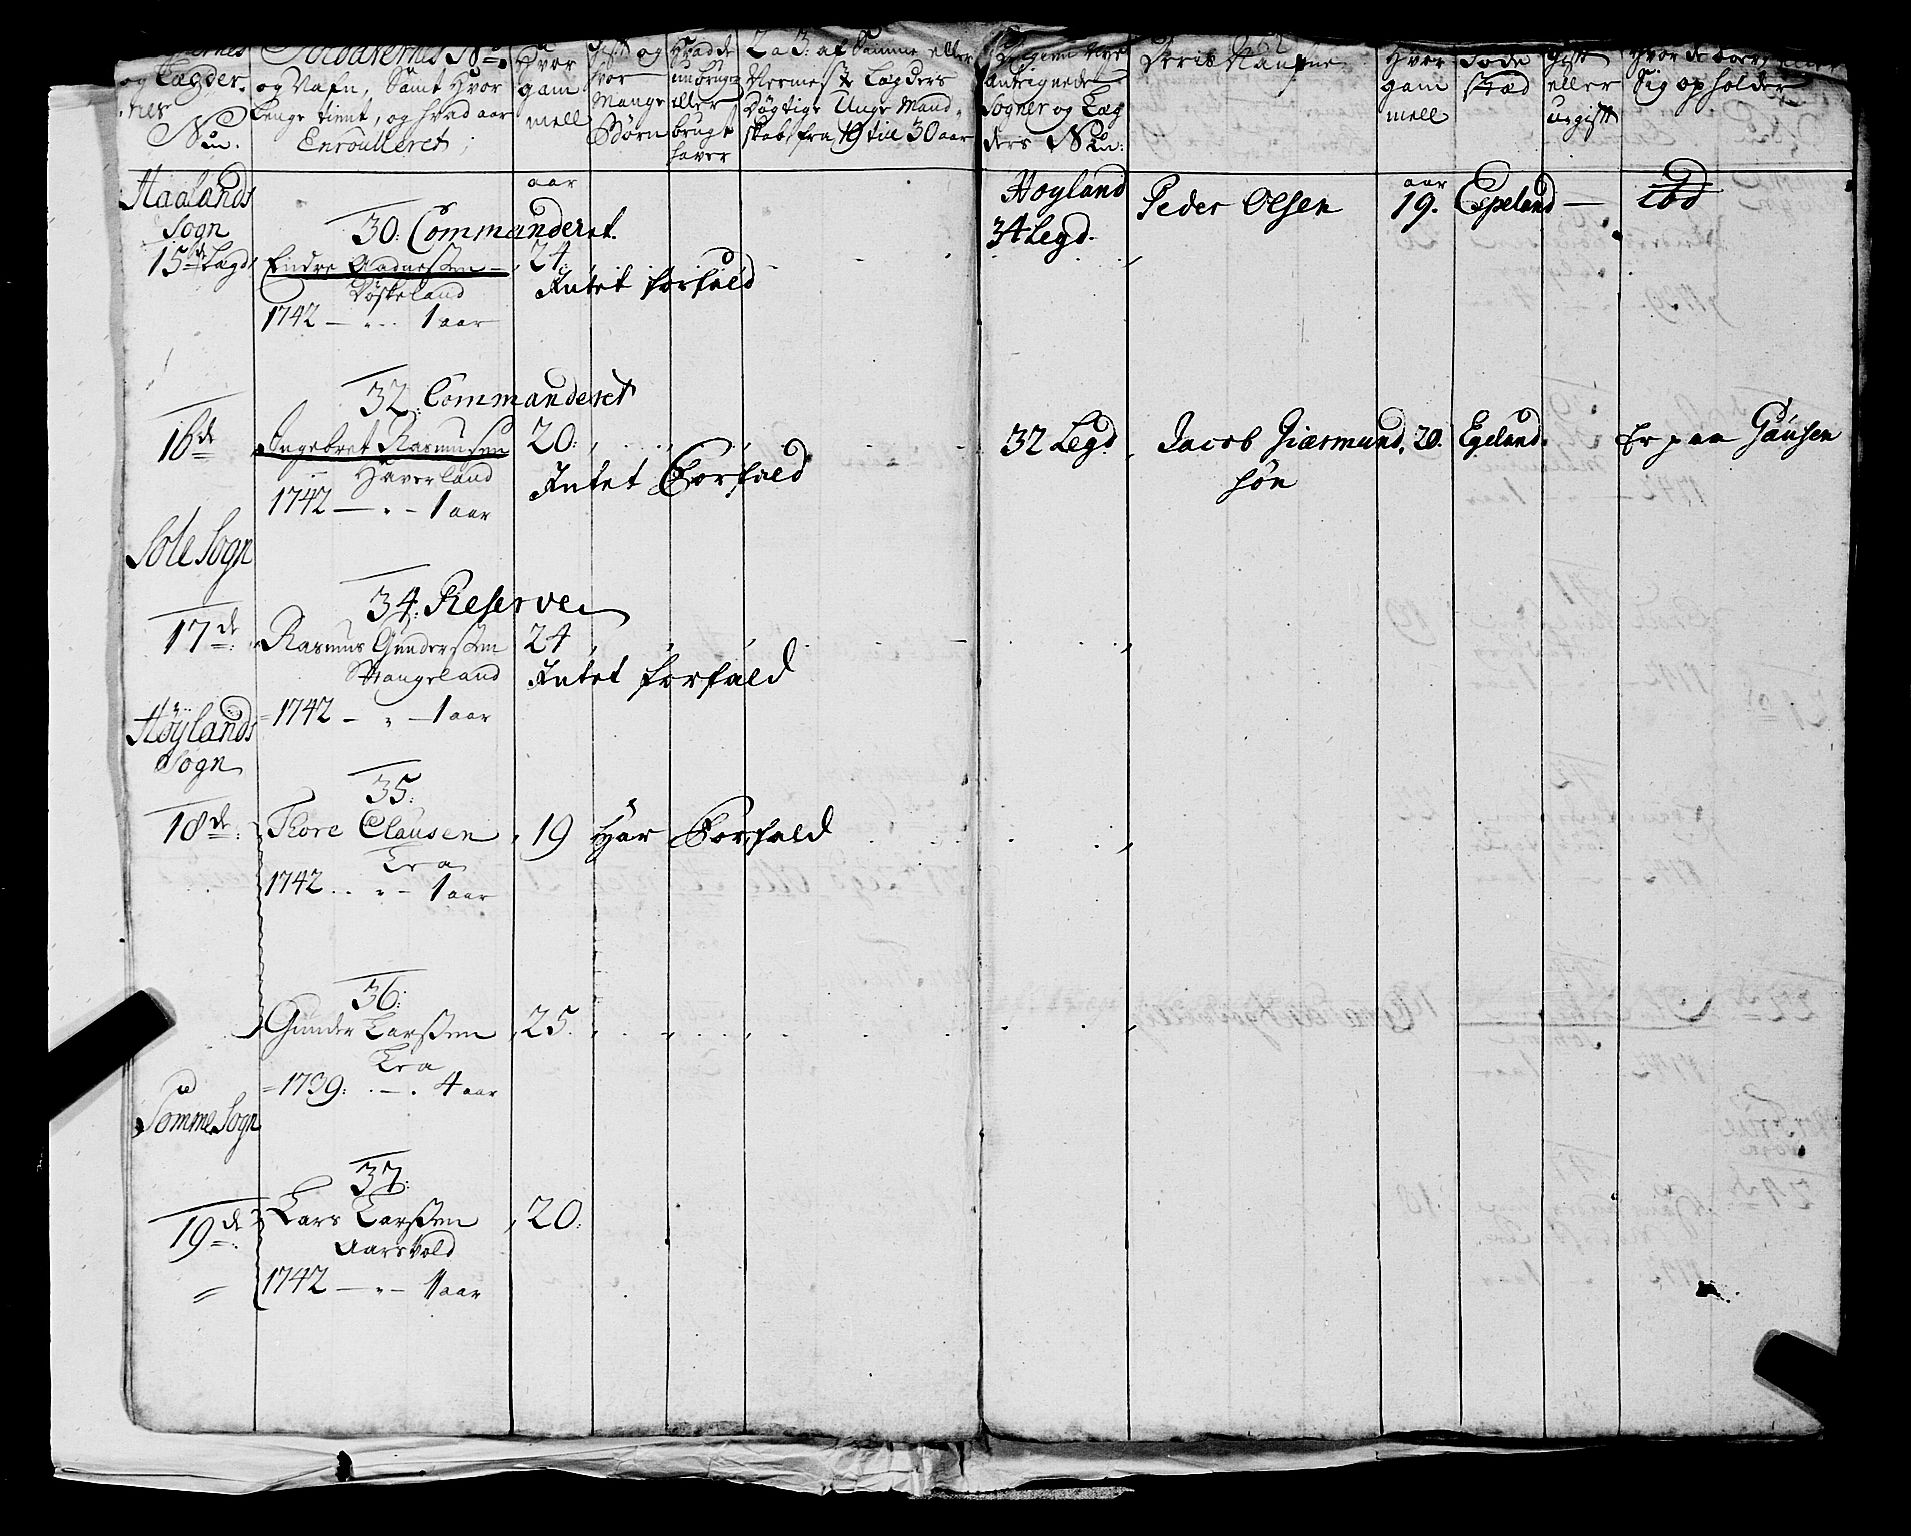 og Lægder-
nes
No.
Soldaternes No.
og Nafn, Samt Hvor
Lenge tient, og hvad aar
Enroulleret
Hvor
gam
mell
gift og
hvor
Mange
Børn
Hvad de
eller
brugt
haver
2 a 3: af Samme eller
Nermeste Lægders
Døgtige Unge Mand-
skab, fra 19 til 30 aar
antegnede
Sogner og Læg
ders No:
Deris Naufne
Hvor
gam
mell
Føde
stæd
gift
eller
ugift
Hvor de
Sig opholder
Haalands
Sogn
15de Lægd
30. Commanderet.
Endre Aadnesen
Døskeland
1742 — „ — 1 aar
aar
24.
Intet forfald
Høyland
34 Legd.
Peder Olsen
aar
19.
Espeland —
tod
16de
32. Commanderet
Ingebret Rasmusen
Haverland
1742 — „ — 1 aar
20:
Intet Forfald
32 Legd
Jacob Giærmund
søn
20.
Egeland.
Er paa Gausen
Sole Sogn
17de
34. Reserve
Rasmus Gunderssen
Stangeland
1742 — „ — 1 aar
24
Intet forfald
Høylands
Sogn
18de
35.
Tore Clausen
Lra
1742 .. „ — 1 aar
19 Har Forfald
36.
Gunder Larssen
Lra
1739: . — . 4 aar
25.
Somme Sogn
19de
37.
Lars Larssen
Aarsvold
1742 — „ — 1 aar
20: